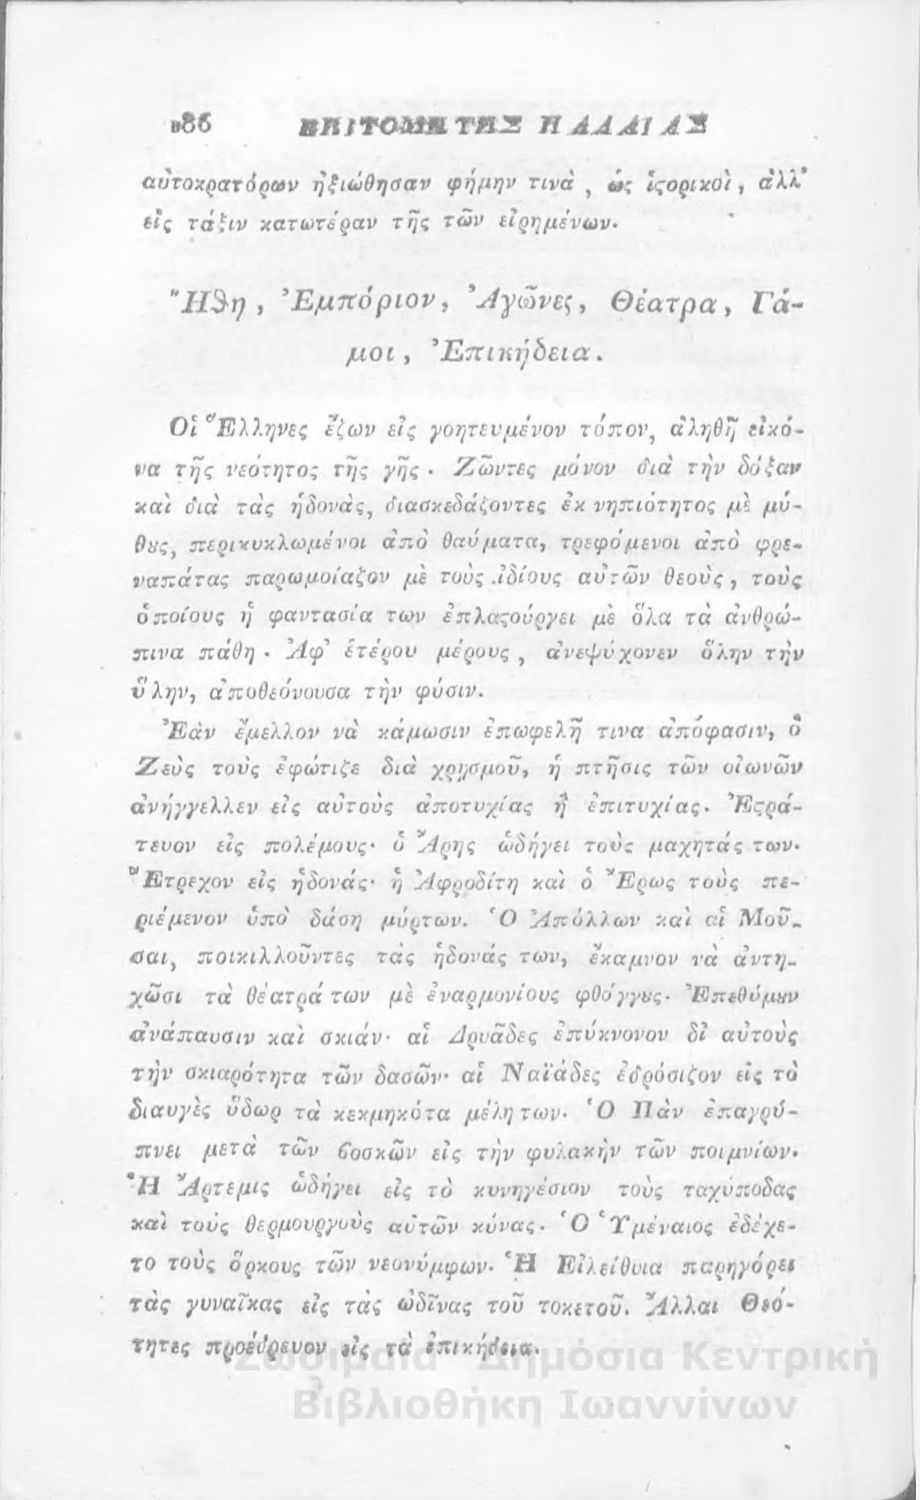 286 ΕΠΙΤΟΜΗ ΤΗΣ ΠΑΛΑΙΑΣ
αὐτοκρατόρων ἠξιώθησαν φήμην τινὰ , ὡς ἱϛορικοὶ, ἀλλ'
εἰς τάξιν κατωτέραν τῆς τῶν εἰρημένων.
Ἤϑη , Ἐμπόριον, Ἀγῶνες, Θέατρα, Γά-
μοι, Ἐπικήδεια.
Οἱ Ἕλληνες ἔζων εἰς γοητευμένον τόπον, ἀληθῆ εἰκό-
να τῆς νεότητος τῆς γῆς · Ζῶντες μόνον διὰ τὴν δόξαν
καὶ διὰ τὰς ἡδονὰς, διασκεδάζοντες ἐκ νηπιότητος μὲ μύ-
θȣς, περικυκλωμένοι ἀπὸ θαύματα, τρεφόμενοι ἀπὸ φρε-
ναπάτας παρωμοίαζον μὲ τοὺς ἰδίους αὐτῶν θεοὺς, τοὺς
ὁποίους ἡ φαντασία των ἐπλαϛούργει μὲ ὅλα τὰ ἀνθρώ-
πινα πάθη · Ἀφ' ἑτέρου μέρους , ἀνεψύχονεν ὅλην τὴν
ὕλην, ἀποθεόνουσα τὴν φύσιν.
Ἐὰν ἔμελλον νὰ κάμωσιν ἐπωφελῆ τινα ἀπόφασιν, ὁ
Ζεὺς τοὺς ἐφώτιζε διὰ χρησμοῦ, ἡ πτῆσις τῶν οἰωνῶν
ἀνήγγελλεν εἰς αὐτοὺς ἀποτυχίας ἢ ἐπιτυχίας. Ἐϛρά-
τευον εἰς πολέμους· ὁ Ἄρης ὡδήγει τοὺς μαχητάς των.
Ἔτρεχον εἰς ἡδονάς· ἡ Ἀφροδίτη καὶ ὁ Ἔρως τοὺς πε-
ριέμενον ὑπὸ δάση μύρτων. Ὁ Ἀπόλλων καὶ αἱ Μοῦ-
σαι, ποικιλλοῦντες τὰς ἡδονάς των, ἔκαμνον νὰ ἀντη-
χῶσι τὰ θέατρά των μὲ ἐναρμονίους φθόγγȣς. Ἐπεθύμȣν
ἀνάπαυσιν καὶ σκιάν· αἱ Δρυάδες ἐπύκνονον δι' αὐτοὺς
τὴν σκιαρότητα τῶν δασῶν· αἱ Ναϊάδες ἐδρόσιζον εἰς τὸ
διαυγὲς ὕδωρ τὰ κεκμηκότα μέλη των. Ὁ Πὰν ἐπαγρύ-
πνει μετὰ τῶν ϐοσκῶν εἰς τὴν φυλακὴν τῶν ποιμνίων.
Ἡ Ἄρτεμις ὡδήγει εἰς τὸ κυνηγέσιον τοὺς ταχύποδας
καὶ τοὺς θερμουργοὺς αὐτῶν κύνας. Ὁ Ὑμέναιος ἐδέχε-
το τοὺς ὅρκους τῶν νεονύμφων. Ἡ Εἰλείθυια παρηγόρει
τὰς γυναῖκας εἰς τὰς ὠδῖνας τοῦ τοκετοῦ. Ἄλλαι Θεό-
τητες προέδρευον εἰς τὰ ἐπικήδεια.
Ζωσιμαία Δημόσια Κεντρική
Βιβλιοθήκη Ιωαννίνων